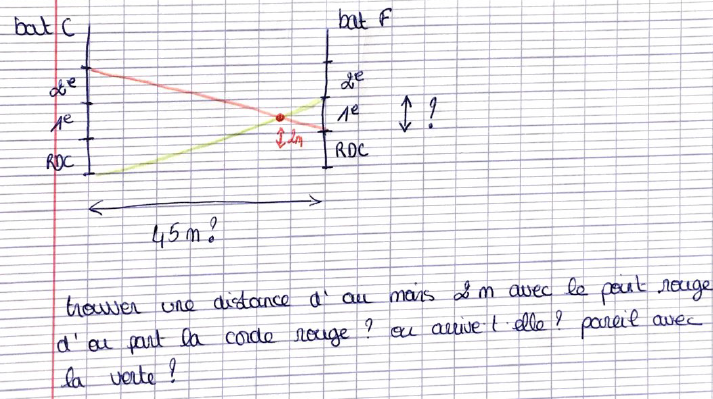 bat C
bat F
2e
2e
1e
1e
?
2m
RDC
RDC
45m?
trouver une distance d' au mois 2 m avec le point rouge
d' ou part la corde rouge ? ou arrive t elle ? pareil avec
la verte ?